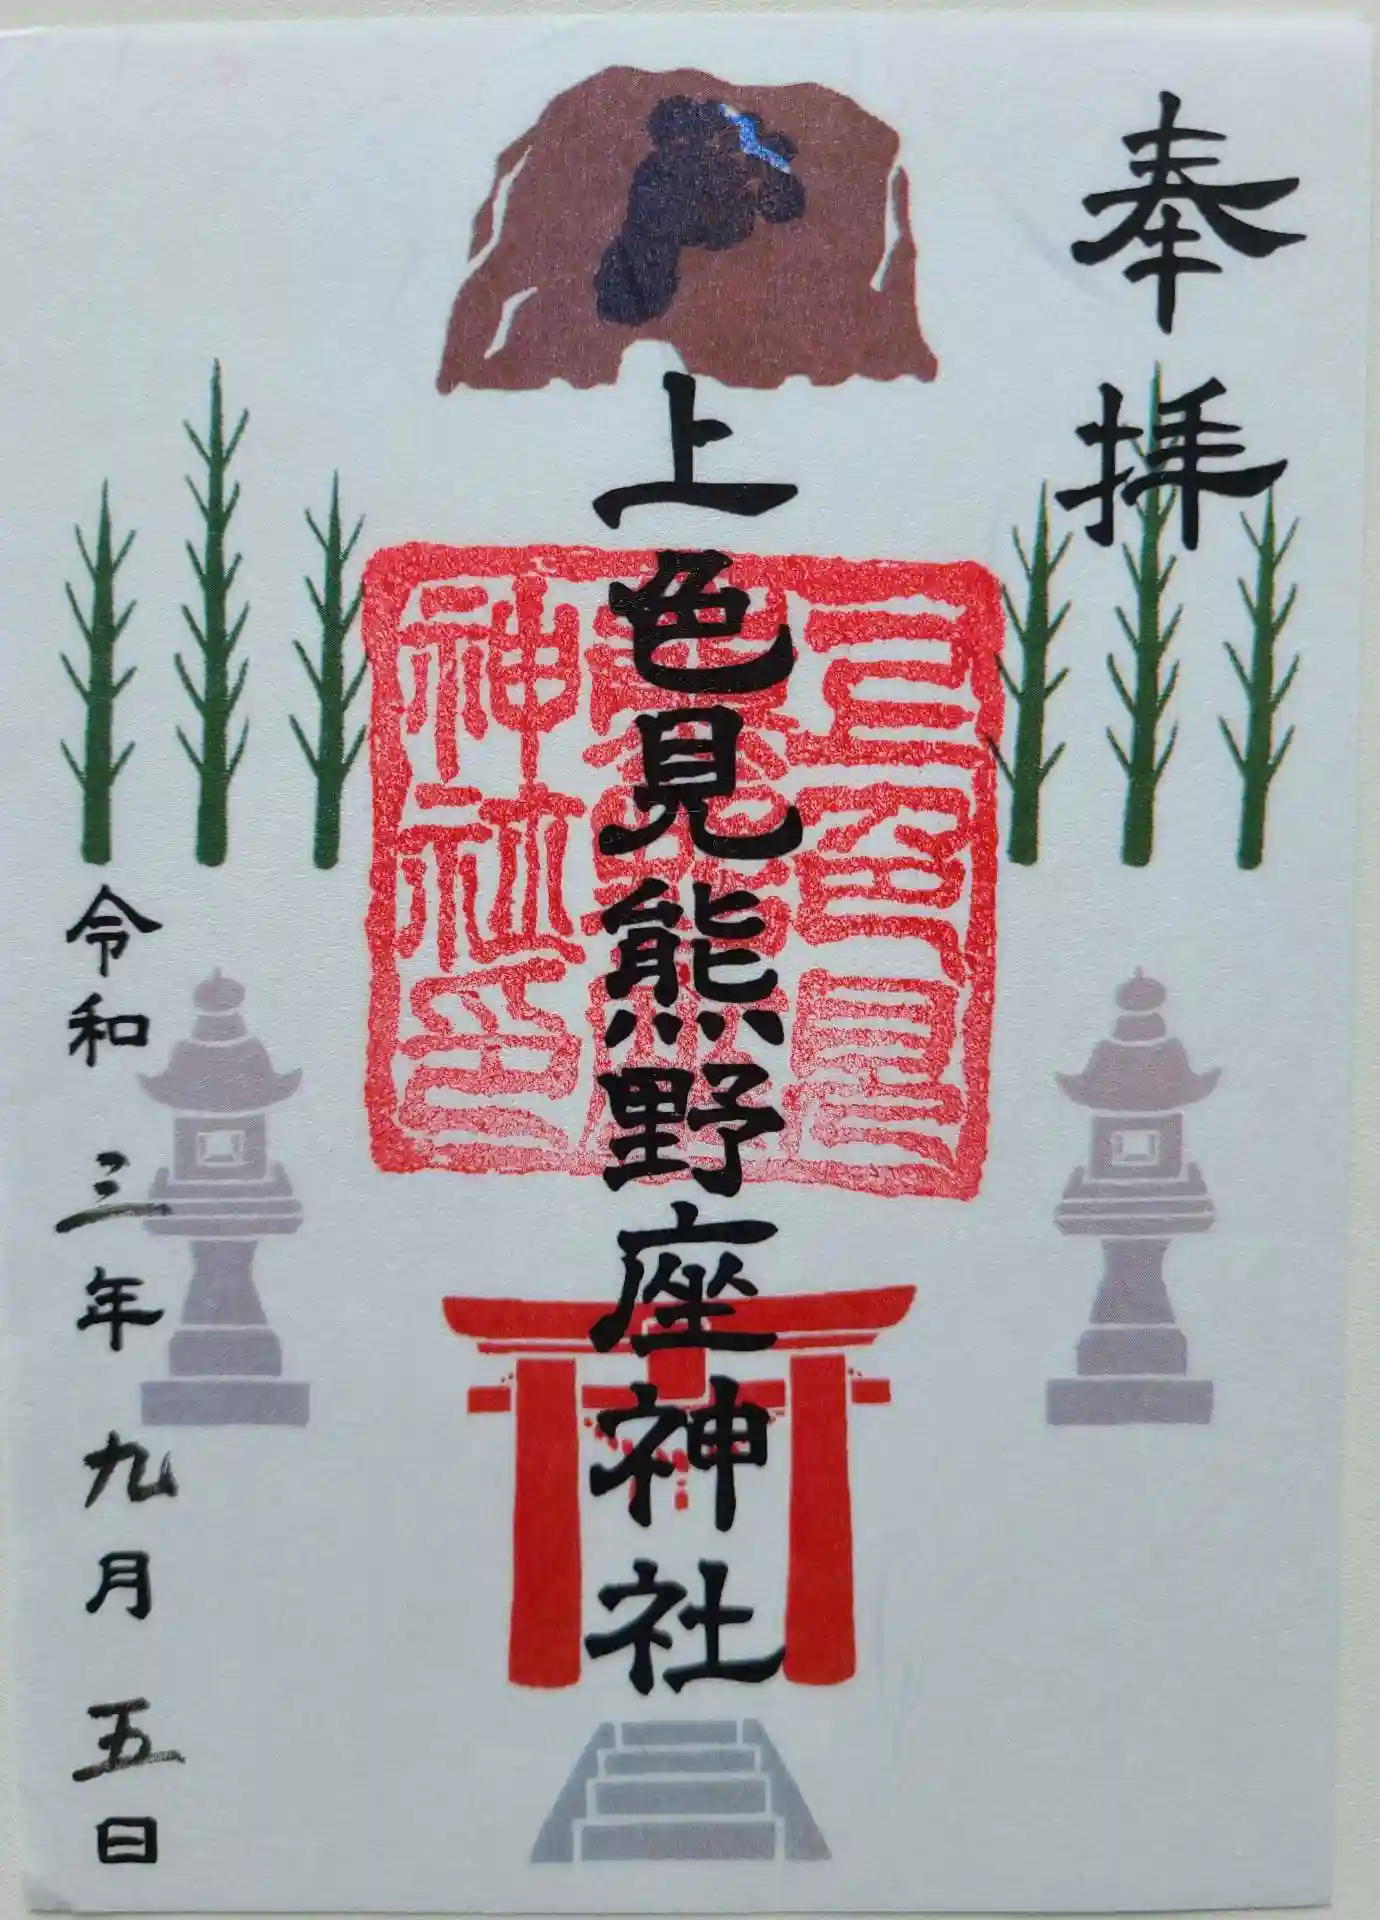 奉拝
上色見熊野座神社
上色見
神社印
令和三年九月五日